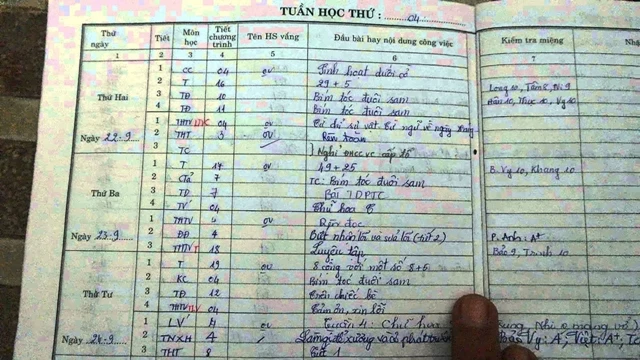 TUẦN HỌC THỨ : 04
Thứ ngày Tiết Môn học Tiết chương trình Tên HS vắng Đầu bài hay nội dung công việc Kiểm tra miệng
1 2 3 4 5 6 7
Thứ Hai
1 CC 04 ov Sinh hoạt dưới cờ
2 T 16 29 + 5
3 TĐ 10 Bím tóc đuôi sam
4 TĐ 11 Bím tóc đuôi sam
Long 10, Tâm 8, Ni 9
Hân 10, Thục 10, Vy 10
Ngày 22-9
1 04 ov Từ chỉ sự vật. Từ ngữ về ngày tháng
2 THT 3 ov Rèn toán
3 TC Nghỉ ĐHCCVC cấp
Thứ Ba
1 T 17 ov 49 + 25
2 Ctả 7 TC: Bím tóc đuôi sam
3 TD 7 Bài 7 DPTC
4 TV 04 Chữ hoa C
B. Vy 10, Khang 10
Ngày 23-9
1 THTV ov Rèn đọc
2 ĐĐ 4 Biết nhận lỗi và sửa lỗi (tiết 2)
3 18 Luyện tập
P. Anh: A+
Bảo 9, Trinh 10
Thứ Tư
1 T 19 ov 8 cộng với một số 8+5
2 KC 04 Bím tóc đuôi sam
3 TĐ 12 Trên chiếc bè
4 04 Cảm ơn, xin lỗi
Ngày 24-9
1 LV 4 ov Tuần 4: Chữ hoa
2 TNXH 4 Làm gì để xương và cơ phát triển
3 THT 8 Tiết 1